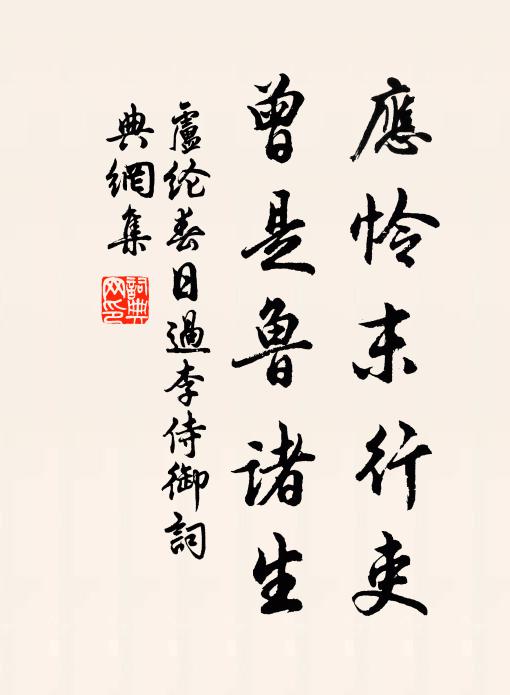 應怜末行吏
曾是魯诸生
盧纶春日過李侍御詞
典網集
詞典
网印